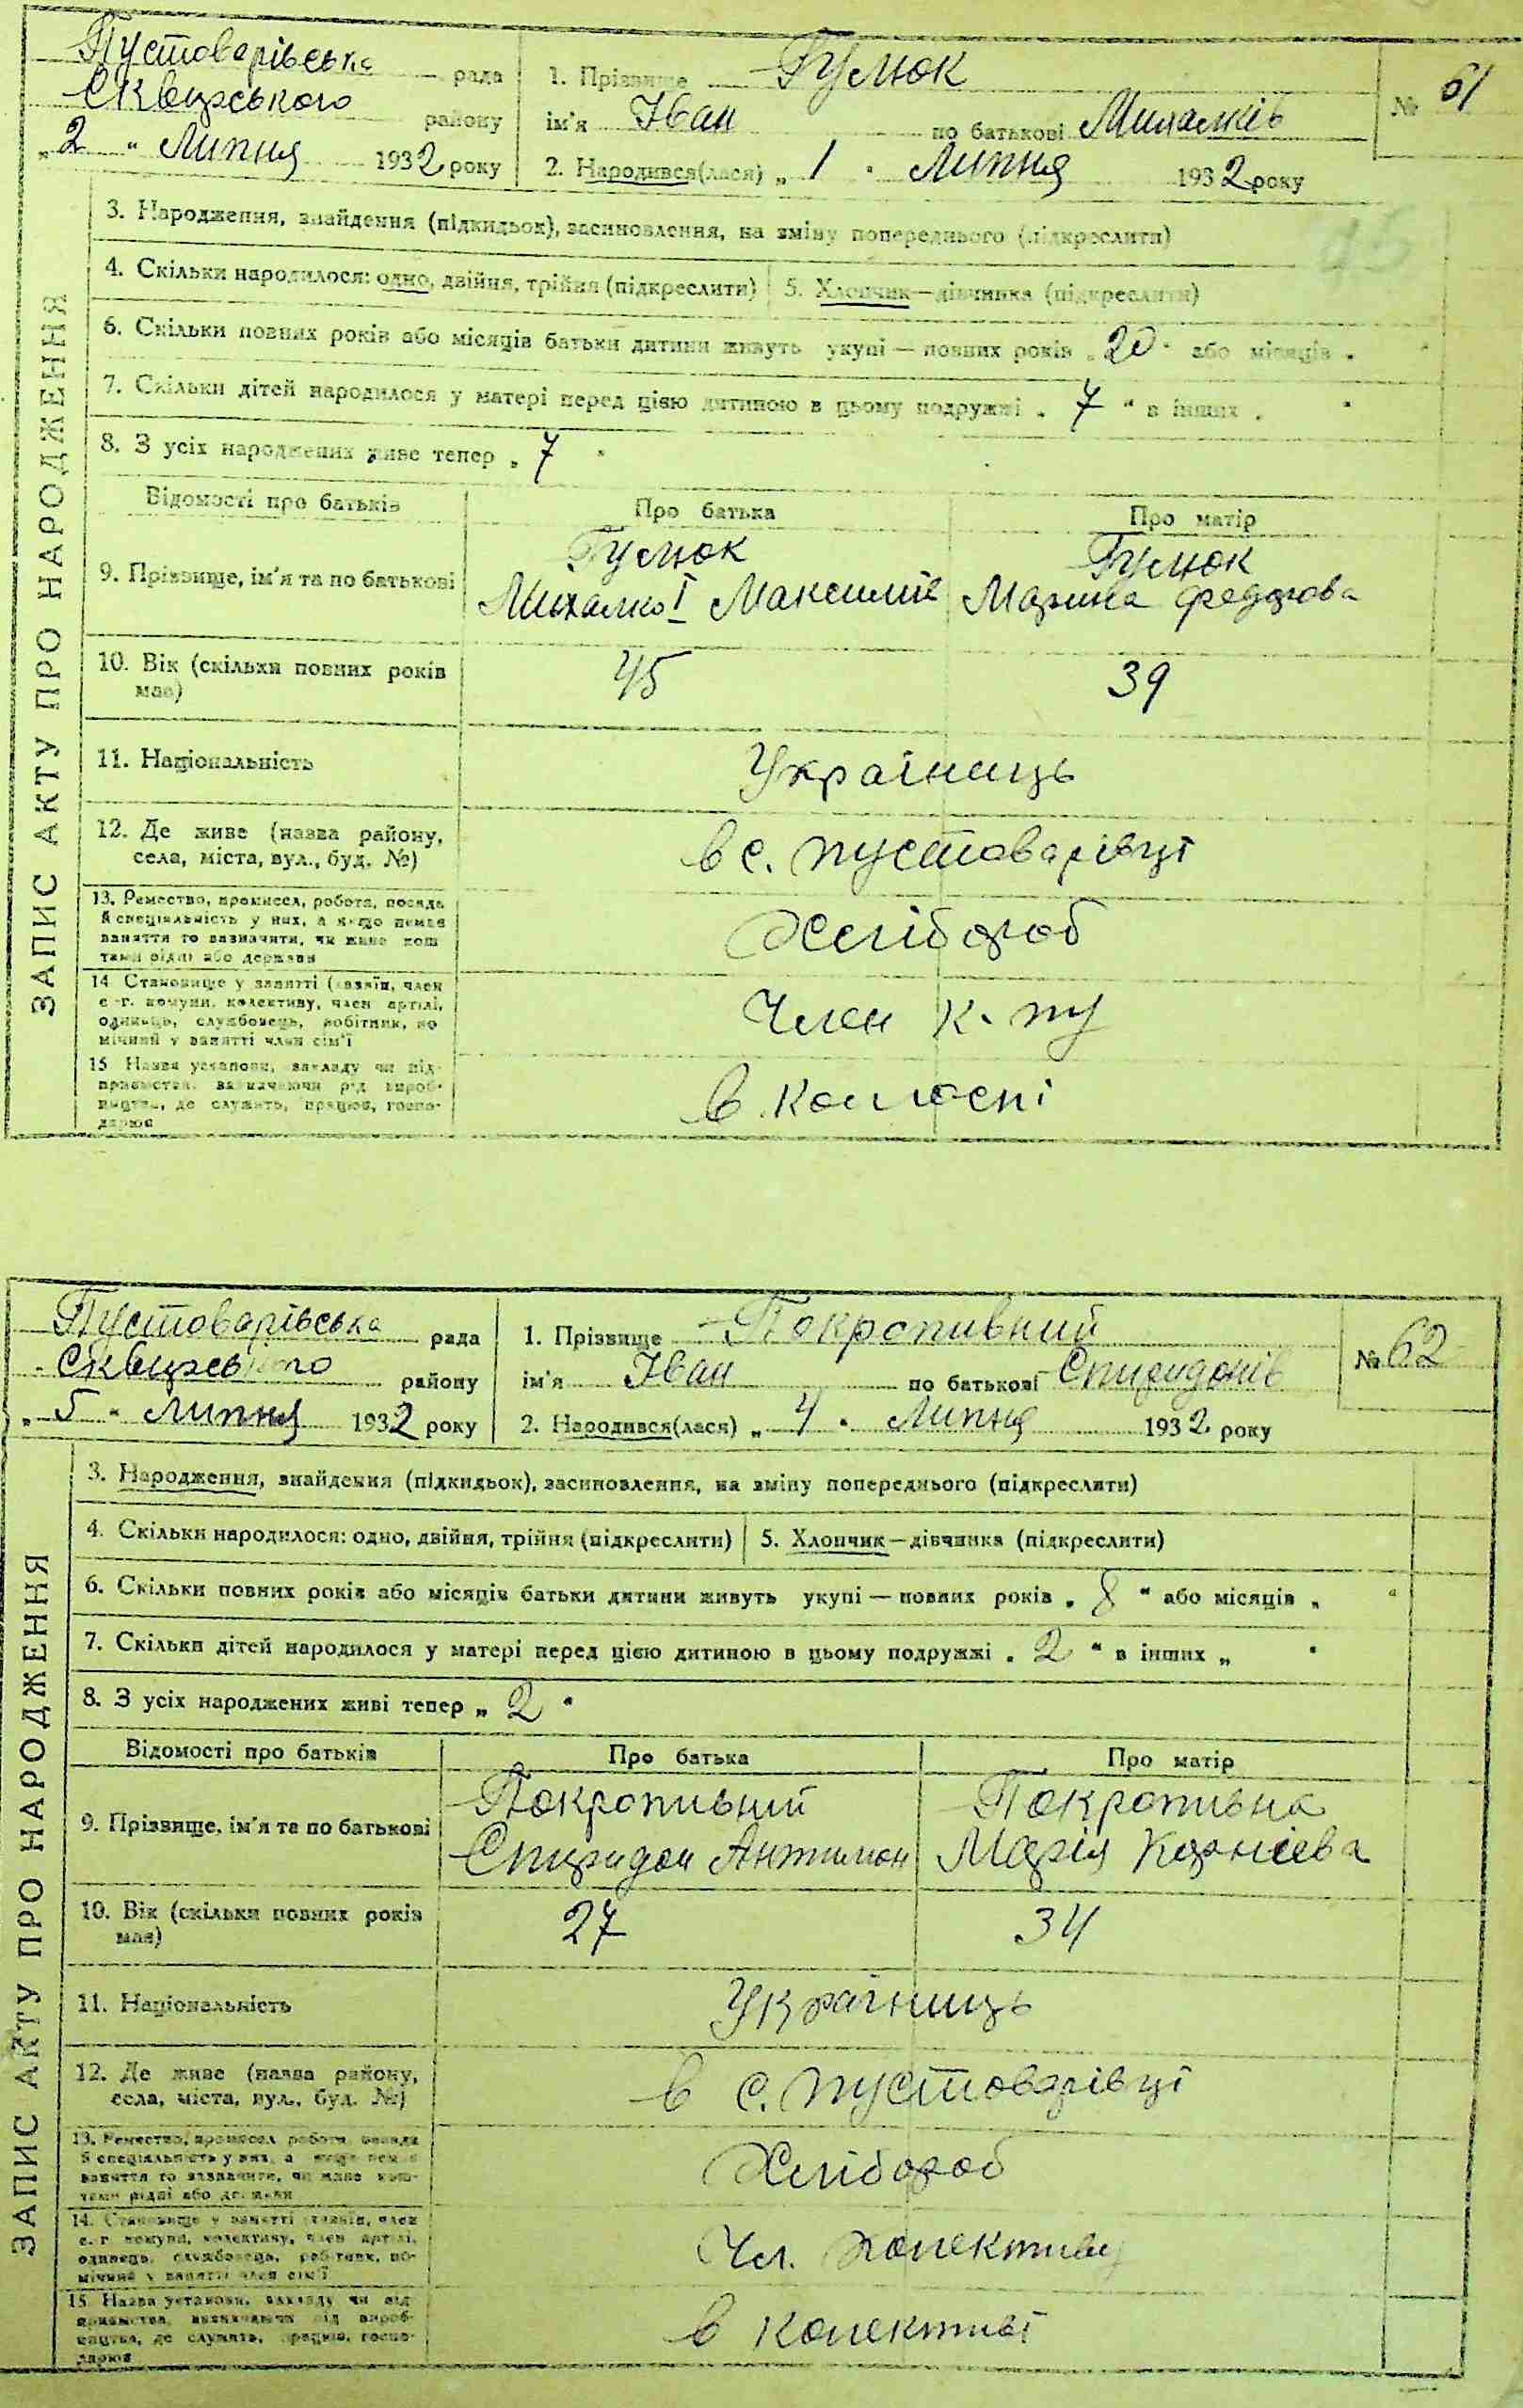 Пустоварівська рада
Сквирського району
„2" Липня 1932 року
1. Прізвище Гулюк
ім'я Іван по батькові Михалків
2. Народився(лася) „1" Липня 1932 року
№ 61
ЗАПИС АКТУ ПРО НАРОДЖЕННЯ
3. Народження, знайдення (підкидьок), засиновлення, на зміну попереднього (підкреслити)
4. Скільки народилося: одно, двійня, трійня (підкреслити) 5. Хлопчик—дівчинка (підкреслити)
6. Скільки повних років або місяців батьки дитини живуть укупі — повних років „20" або місяців „ "
7. Скільки дітей народилося у матері перед цією дитиною в цьому подружжі „7" в інших „ "
8. З усіх народжених живе тепер „7"
Відомості про батьків Про батька Про матір
9. Прізвище, ім'я та по батькові
Гулюк Гулюк
Михалко І Максимів Марина Федорова
10. Вік (скільки повних років має) 45 39
11. Національність Українець
12. Де живе (назва району, села, міста, вул., буд. №) в с. Пустоварівці
13. Ремество, промисел, робота, посада
й спеціальність у них, а якщо немає
заняття то зазначити, чи живе кош
тами рідні або держави
Хлібороб
14. Становище у занятті (хазяїн, член
с.-г. комуни, колективу, член артілі,
одинець, службовець, робітник, по
мічний у занятті член сім'ї
Член к-ву
15. Назва установи, закладу чи під-
приємства, зазначаючи рід вироб-
ництва, де служить, працює, госпо-
дарює
в
Пустоварівська рада
Сквирського району
„5" Липня 1932 року
1. Прізвище Покропивний
ім'я Іван по батькові Спиридонів
2. Народився(лася) „4" Липня 1932 року
№ 62
ЗАПИС АКТУ ПРО НАРОДЖЕННЯ
3. Народження, знайдення (підкидьок), засиновлення, на зміну попереднього (підкреслити)
4. Скільки народилося: одно, двійня, трійня (підкреслити) 5. Хлопчик—дівчинка (підкреслити)
6. Скільки повних років або місяців батьки дитини живуть укупі — повних років „8" або місяців „ "
7. Скільки дітей народилося у матері перед цією дитиною в цьому подружжі „2" в інших „ "
8. З усіх народжених живі тепер „2"
Відомості про батьків Про батька Про матір
9. Прізвище, ім'я та по батькові
Покропивний Покропивна
Спиридон Антимон Марія Корнієва
10. Вік (скільки повних років має) 27 34
11. Національність Українець
12. Де живе (назва району, села, міста, вул., буд. №) в с. Пустоварівці
13. Ремество, промисел, робота, посада
й спеціальність у них, а якщо немає
заняття то зазначити, чи живе кош-
тами рідні або держави
Хлібороб
14. Становище у занятті (хазяїн, член
с.-г. комуни, колективу, член артілі,
одинець, службовець, робітник, по-
мічний у занятті член сім'ї
Чл. колективу
15. Назва установи, закладу чи під
приємства, зазначаючи рід вироб-
ництва, де служить, працює, госпо-
дарює
в колективі